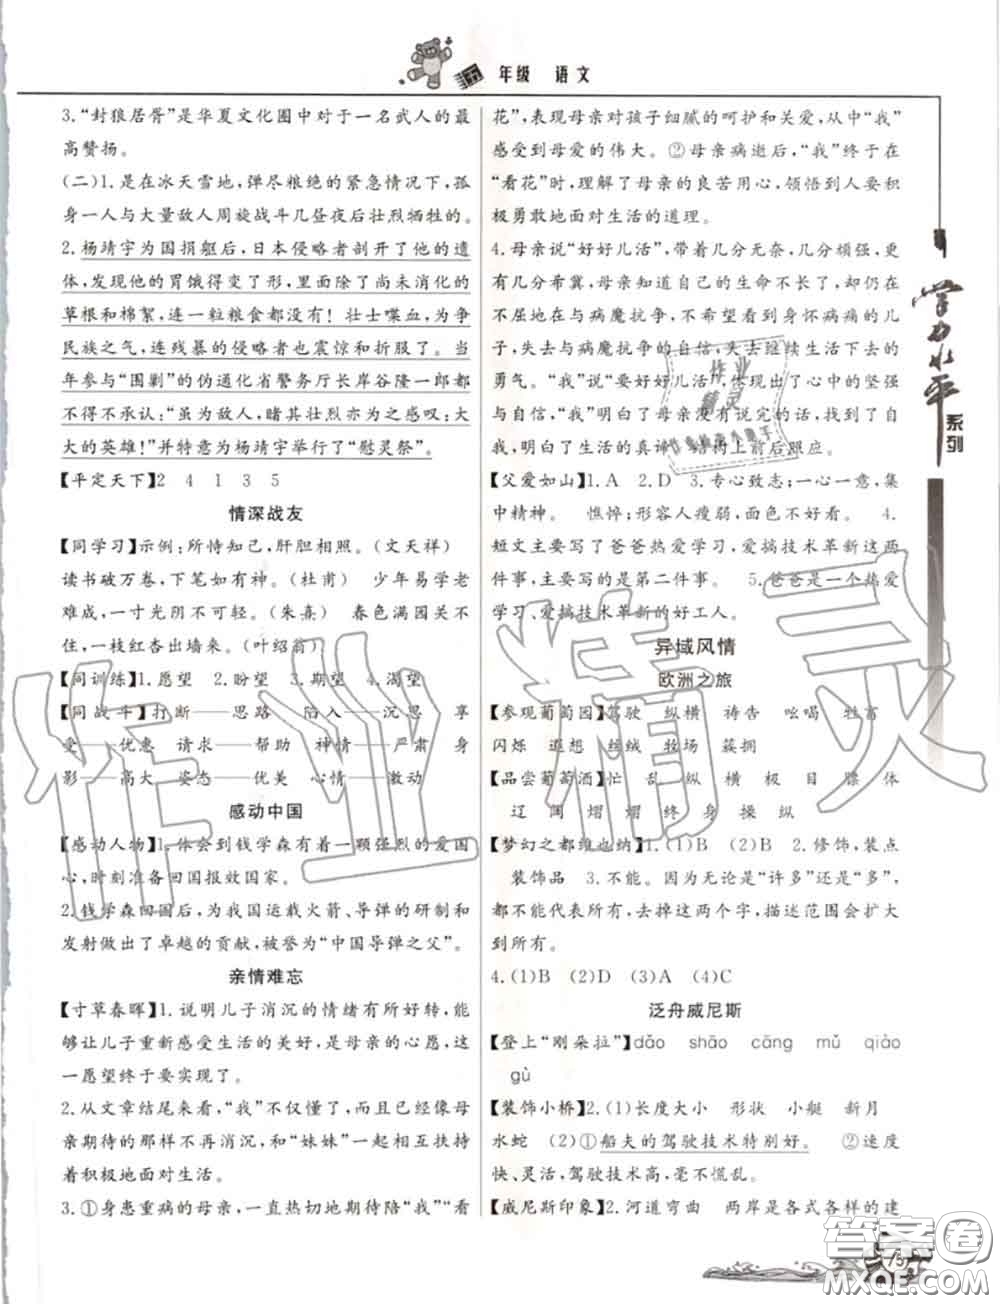 年级 语文
3.“封狼居胥”是华夏文化圈中对于一名武人的最
高赞扬。
(二)1.是在冰天雪地，弹尽粮绝的紧急情况下，孤
身一人与大量敌人周旋战斗几昼夜后壮烈牺牲的。
2.杨靖宇为国捐躯后，日本侵略者剖开了他的遗
体，发现他的胃饿得变了形，里面除了尚未消化的
草根和棉絮，连一粒粮食都没有！壮士喋血，为争
民族之气，连残暴的侵略者也震惊和折服了。当
年参与“围剿”的伪通化省警务厅长岸谷隆一郎都
不得不承认：“虽为敌人，睹其壮烈亦为之感叹：大
大的英雄！”并特意为杨靖宇举行了“慰灵祭”。
【平定天下】2 4 1 3 5
情深战友
【同学习】示例：所恃知己，肝胆相照。（文天祥）
读书破万卷，下笔如有神。（杜甫） 少年易学老
难成，一寸光阴不可轻。（朱熹） 春色满园关不
住，一枝红杏出墙来。（叶绍翁）
【同训练】1.愿望 2.盼望 3.期望 4.渴望
【同战斗】打断——思路 陷入——沉思 享
受——优惠 请求——帮助 神情——严肃 身
影——高大 姿态——优美 心情——激动
感动中国
【感动人物】1.体会到钱学森有着一颗强烈的爱国
心，时刻准备回国报效国家。
2.钱学森回国后，为我国运载火箭、导弹的研制和
发射做出了卓越的贡献，被誉为“中国导弹之父”。
亲情难忘
【寸草春晖】1.说明儿子消沉的情绪有所好转，能
够让儿子重新感受生活的美好，是母亲的心愿，这
一愿望终于要实现了。
2.从文章结尾来看，“我”不仅懂了，而且已经像母
亲期待的那样不再消沉，和“妹妹”一起相互扶持
着积极地面对生活。
3.①身患重病的母亲，一直热切地期待陪“我”“看
花”，表现母亲对孩子细腻的呵护和关爱，从中“我”
感受到母爱的伟大。②母亲病逝后，“我”终于在
“看花”时，理解了母亲的良苦用心，领悟到人要积
极勇敢地面对生活的道理。
4.母亲说“好好儿活”，带着几分无奈，几分顽强，更
有几分希冀，母亲知道自己的生命不长了，却仍在
不屈地在与病魔抗争，不希望看到身怀病痛的儿
子，失去与病魔抗争的自信，失去继续生活下去的
勇气。“我”说“要好好儿活”，体现了心中的坚强
与自信，“我”明白了母亲没有说完的话，找到了自
我，明白了生活的真谛，结构上前后照应。
【父爱如山】1.A 2.D 3.专心致志：一心一意，集
中精神。 憔悴：形容人瘦弱，面色不好看。 4.
短文主要写了爸爸热爱学习、爱搞技术革新这两
件事，主要写的是第二件事。 5.爸爸是一个热爱
学习、爱搞技术革新的好工人。
异域风情
欧洲之旅
【参观葡萄园】驾驶 纵横 祷告 吆喝 牲畜
闪烁 遐想 丝绒 牧场 簇拥
【品尝葡萄酒】忙 乱 纵 横 极 目 膘 体
辽 阔 熠 熠 终 身 操 纵
【梦幻之都维也纳】1.(1)B (2)B 2.修饰，装点
装饰品 3.不能。因为无论是“许多”还是“多”，
都不能代表所有，去掉这两个字，描述范围会扩大
到所有。
4.(1)B (2)D (3)A (4)C
泛舟威尼斯
【登上“刚朵拉”】dǎo shāo cāng mǔ qiào
gù
【装饰小桥】2.(1)长度大小 形状 小艇 新月
水蛇 (2)①船夫的驾驶技术特别好。 ②速度
快、灵活，驾驶技术高，毫不慌乱。
【威尼斯印象】2.河道弯曲 两岸是各式各样的建
学力水平
系列
75
作业精灵
答案圈
MXQE.COM